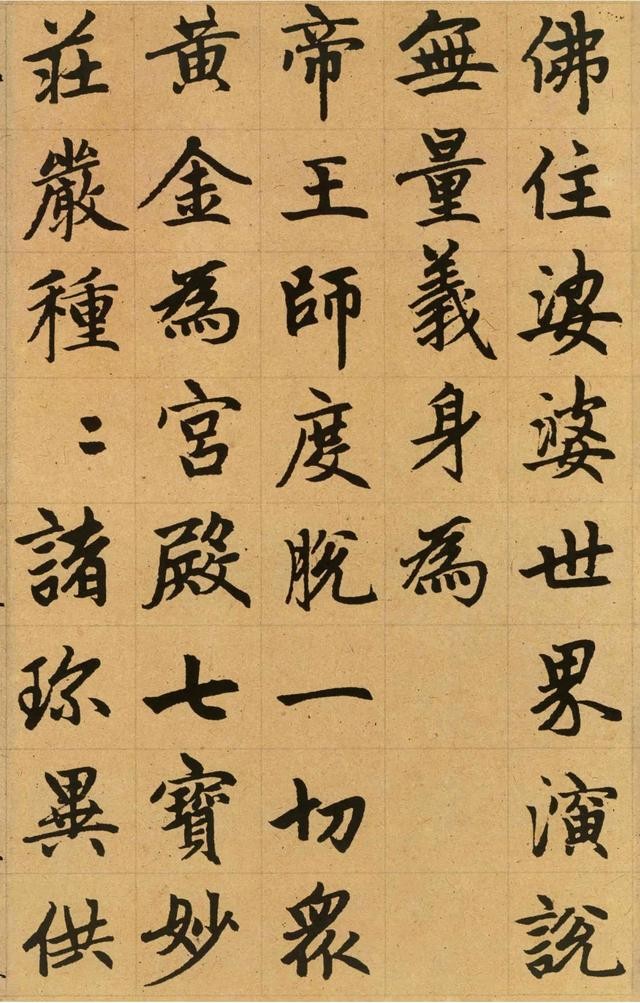 佛住娑婆世界演說
無量義身為
帝王師度脫一切眾
黃金為宮殿七寶妙
莊嚴種〻諸珍異供